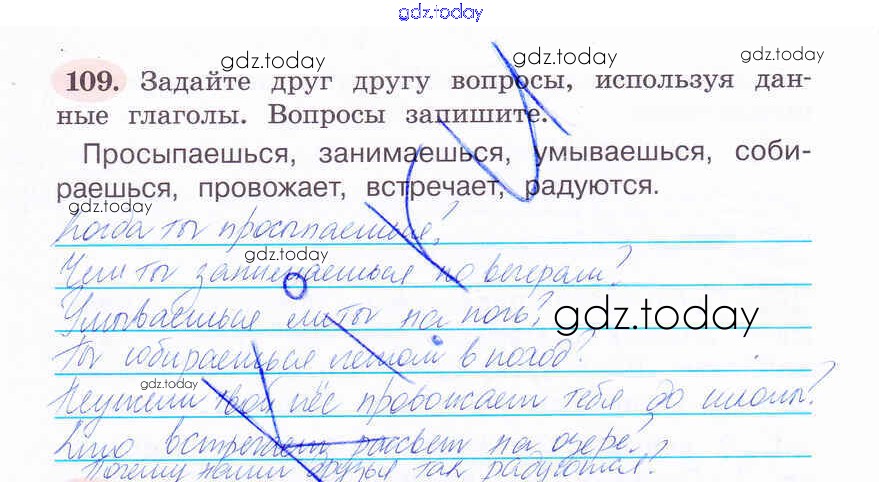 gdz.today
gdz.today gdz.today gdz.today
109. Задайте друг другу вопросы, используя дан-
ные глаголы. Вопросы запишите.
Просыпаешься, занимаешься, умываешься, соби-
раешься, провожает, встречает, радуются.
gdz.today
Когда ты просыпаешься?
gdz.today
Чем ты занимаешься по вечерам?
Умываешься ли ты на ночь?
gdz.today
Ты собираешься летом в поход?
gdz.today
Неужели твой пёс провожает тебя до школы?
Кто встречает рассвет на озере?
Почему наши друзья так радуются?